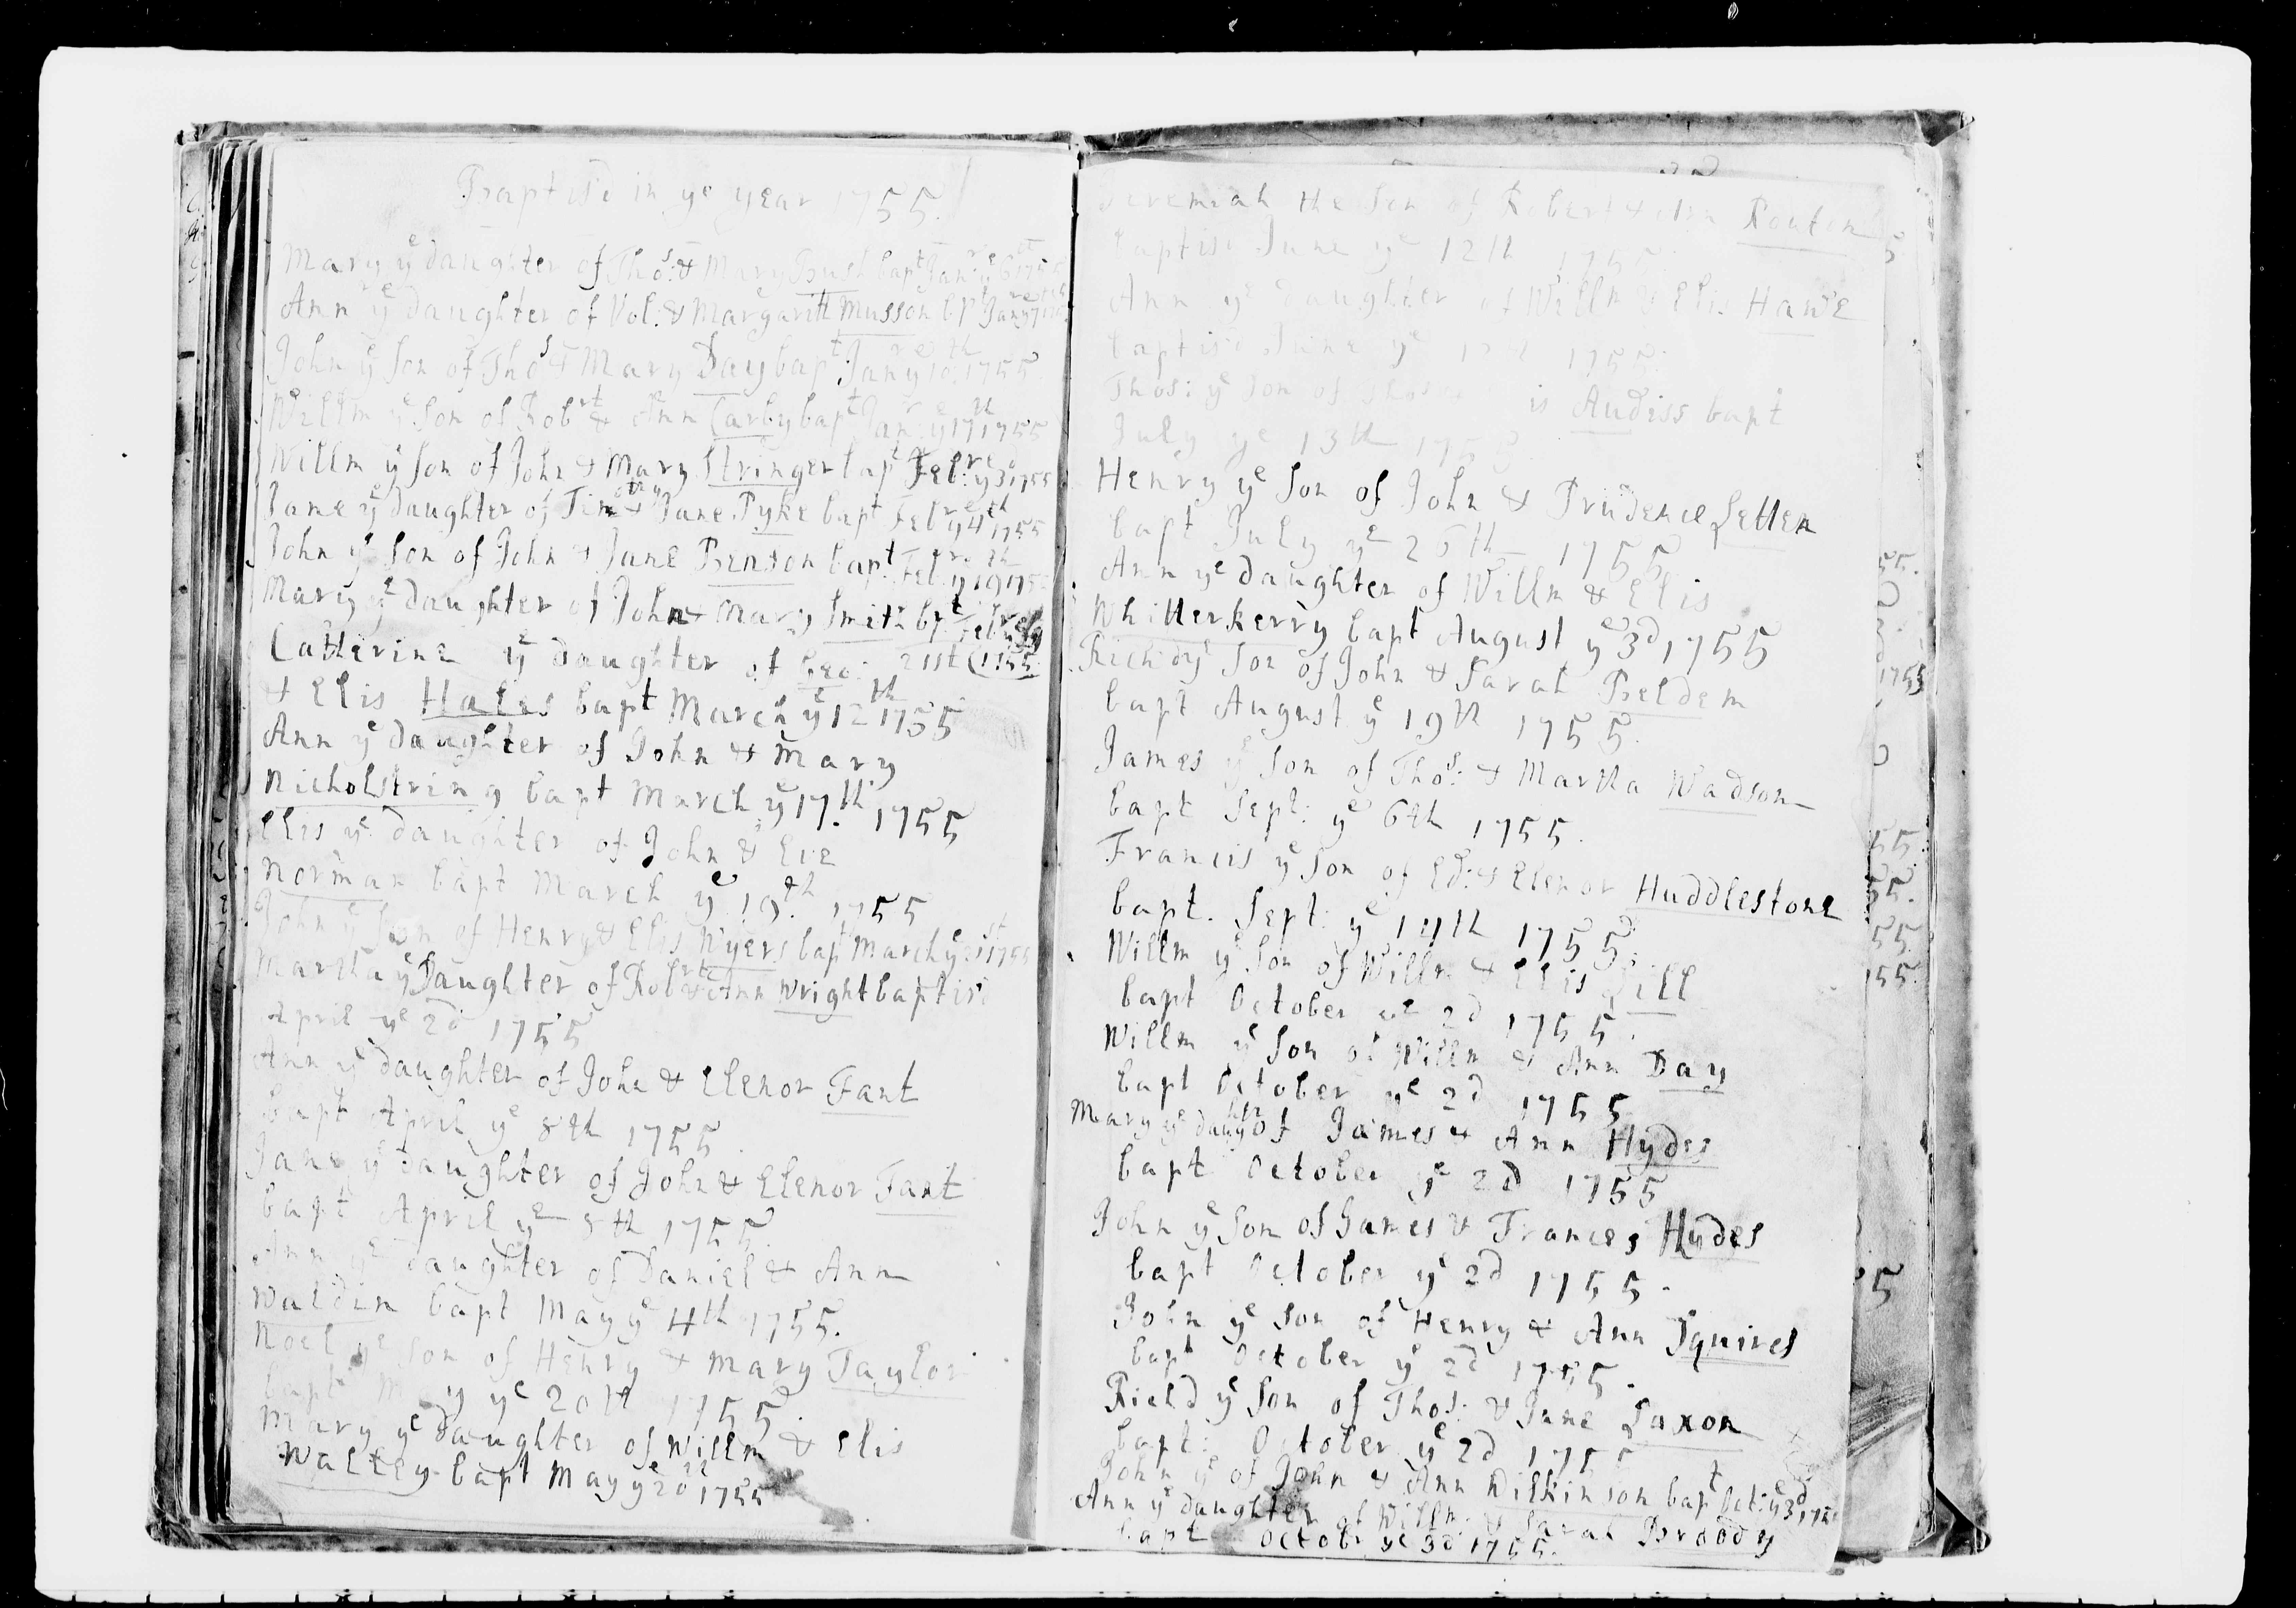 Baptis'd in ye year 1755.
Mary ye daughter of Thos: & Mary Bush bapt Janr: ye 6 1755
Ann ye daughter of Vol: & Margaritt Musson bpt Janry
John ye Son of Thos & Mary Day bapt Janr ye 10th 1755
Willm ye Son of Robrt & Ann Carby bapt Janr: ye 17th 1755
Willm ye Son of John & Mary Stringer bapt Febr: ye 3d 1755
Jane ye daughter of Timothy & Jane Pyke bapt Febr ye 4th 1755
John ye Son of John & Jane Benson bapt Febr ye 19th 175
Mary ye daughter of John & Mary Smith bpt Febr ye
21st 1755
Catherine ye daughter of Geo:
& Elis Hales bapt March ye 12th 1755
Ann ye daughter of John & Mary
Nicholstring bapt March ye 17th 1755
Elis ye daughter of John & Eve
Norman bapt March ye 19th 1755
John ye Son of Henry & Elis Wyers bapt March ye 21st 1755
Martha ye Daughter of Robrt & Ann Wright baptisd
April ye 2d 1755
Ann ye daughter of John & Elenor Fant
bapt April ye 8th 1755
Jane ye daughter of John & Elenor Fant
bapt April ye 8th 1755
Ann ye daughter of Daniel & Ann
Walden bapt May ye 4th 1755.
Noel ye Son of Henry & Mary Taylor
bapt May ye 20th 1755.
Mary ye daughter of Willm & Elis
Walley bapt May ye 1755
Jeremiah the Son of Robert & Ann Routon
baptisd June ye 12th 1755
Ann ye daughter of Willm & Elis Hawe
baptisd June ye 1755.
Thos: ye Son of Thos is Audiss bapt
July ye 13th 1755
Henry ye Son of John & Prudence Setten
bapt July ye 26th 1755
Ann ye daughter of Willm & Elis
Whitterkerry bapt August ye 3d 1755
Richd ye Son of John & Sarah Beldem
bapt August ye 19th 1755.
James ye Son of Thos: & Martha Wadson
bapt Sept: ye 6th 1755.
Francis ye Son of Ed: & Elenor Huddlestone
bapt. Sept: ye 14th 1755
Willm ye Son of Willm & Elis Gill
bapt October ye 2d 1755.
Willm ye Son of Willm & Ann Day
bapt October ye 2d 1755
Mary ye daughtr of James & Ann Hydes
bapt October ye 2d 1755
John ye Son of James & Frances Hydes
bapt October ye 2d 1755.
John ye Son of Henry & Ann Squires
bapt October ye 2d 1755.
Richd ye Son of Thos: & Jane Saxon
bapt: October ye 2d 1755
John ye of John & Ann Dilkinson bapt Oct: ye 3d 1755
Ann ye daughter of Willm & Sarah Broody
bapt Octobr ye 3d 1755.